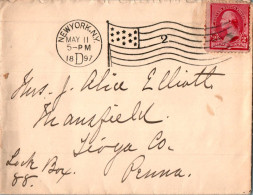 NEW YORK, N.Y.
MAY 11
5-PM
18 D 97
2
Mrs. J. Alice Elliott
Mansfield.
Tioga Co.
Lock Box. Penna.
88.